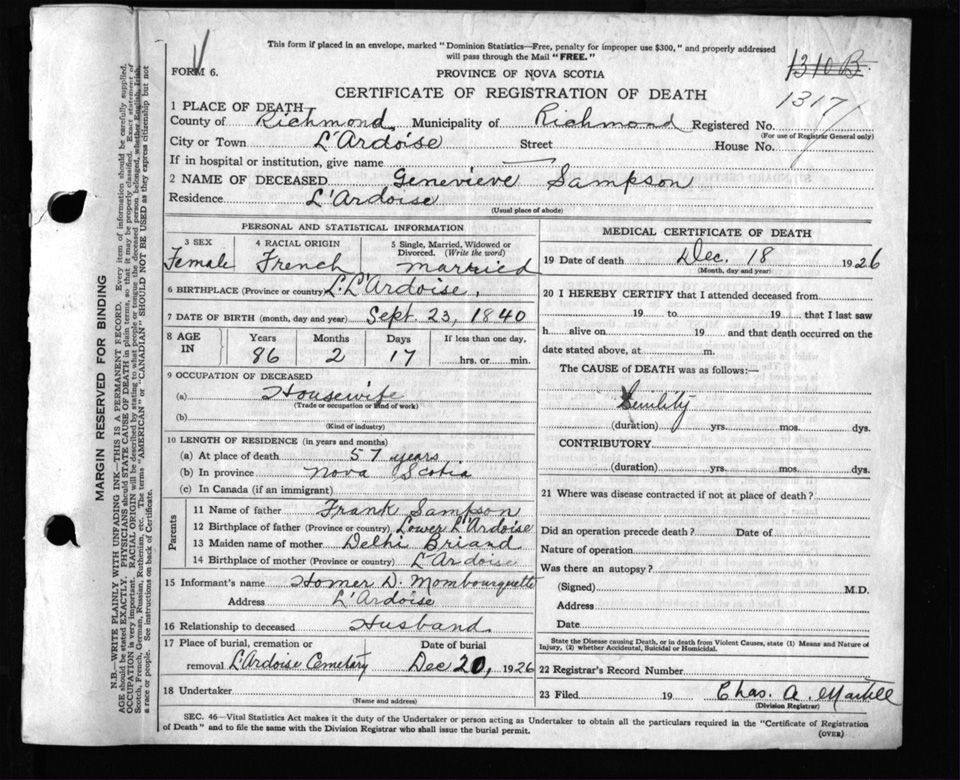 This form if placed in an envelope, marked "Dominion Statistics—Free, penalty for improper use $300," and properly addressed
will pass through the Mail "FREE."
FORM 6.
PROVINCE OF NOVA SCOTIA
1310 B
CERTIFICATE OF REGISTRATION OF DEATH
1317
1 PLACE OF DEATH—
County of Richmond Municipality of Richmond Registered No.
(For use of Registrar General only)
City or Town L'Ardoise Street House No.
If in hospital or institution, give name —
2 NAME OF DECEASED Genevieve Sampson
Residence L'Ardoise
(Usual place of abode)
PERSONAL AND STATISTICAL INFORMATION
3 SEX 4 RACIAL ORIGIN 5 Single, Married, Widowed or
Divorced. (Write the word)
Female French married
6 BIRTHPLACE (Province or country) L. L'Ardoise,
7 DATE OF BIRTH (month, day and year) Sept. 23, 1840
8 AGE IN Years Months Days If less than one day,
86 2 17 hrs. or min.
9 OCCUPATION OF DECEASED
(a) Housewife
(Trade or occupation or kind of work)
(b)
(Kind of industry)
10 LENGTH OF RESIDENCE (in years and months)
(a) At place of death 57 years
(b) In province Nova Scotia
(c) In Canada (if an immigrant)
Parents
11 Name of father Frank Sampson
12 Birthplace of father (Province or country) Lower L'Ardoise
13 Maiden name of mother Delhi Briand
14 Birthplace of mother (Province or country) L'Ardoise
15 Informant's name Homer D. Mombourquette
Address L'Ardoise
16 Relationship to deceased Husband
17 Place of burial, cremation or Date of burial
removal L'Ardoise Cemetary Dec 20, 1926
18 Undertaker
(Name and address)
MEDICAL CERTIFICATE OF DEATH
19 Date of death Dec. 18 1926
(Month, day and year)
20 I HEREBY CERTIFY that I attended deceased from
19 to 19 that I last saw
h alive on 19 and that death occurred on the
date stated above, at m.
The CAUSE of DEATH was as follows:—
Senility
(duration) yrs. mos. dys.
CONTRIBUTORY
(duration) yrs. mos. dys.
21 Where was disease contracted if not at place of death?
Did an operation precede death? Date of
Nature of operation
Was there an autopsy?
(Signed) M.D.
Address
Date
State the Disease causing Death, or in death from Violent Causes, state (1) Means and Nature of
Injury, (2) whether Accidental, Suicidal or Homicidal.
22 Registrar's Record Number
23 Filed 19 Chas. A. Martell
(Division Registrar)
SEC. 46—Vital Statistics Act makes it the duty of the Undertaker or person acting as Undertaker to obtain all the particulars required in the "Certificate of Registration
of Death" and to file the same with the Division Registrar who shall issue the burial permit.
(OVER)
MARGIN RESERVED FOR BINDING
N.B.—WRITE PLAINLY WITH UNFADING INK—THIS IS A PERMANENT RECORD. Every item of information should be carefully supplied.
AGE should be stated EXACTLY. PHYSICIANS should STATE CAUSE OF DEATH in plain terms, so that it may be properly classified. Exact statement of
OCCUPATION is very important. RACIAL ORIGIN will be described by stating to what people or tongue the deceased person belonged, whether English, Irish,
Scotch, French, German, Russian, Ruthenian, etc. The terms "AMERICAN" or "CANADIAN" SHOULD NOT BE USED as they express citizenship but not
a race or people. See instructions on back of Certificate.